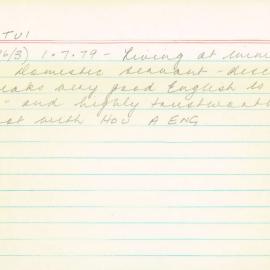 TUI
6/3) 1.7.79 - Living at
Domestic servant - desc
eaks very good English is
" - and highly trustworth
ot with HOU A ENG